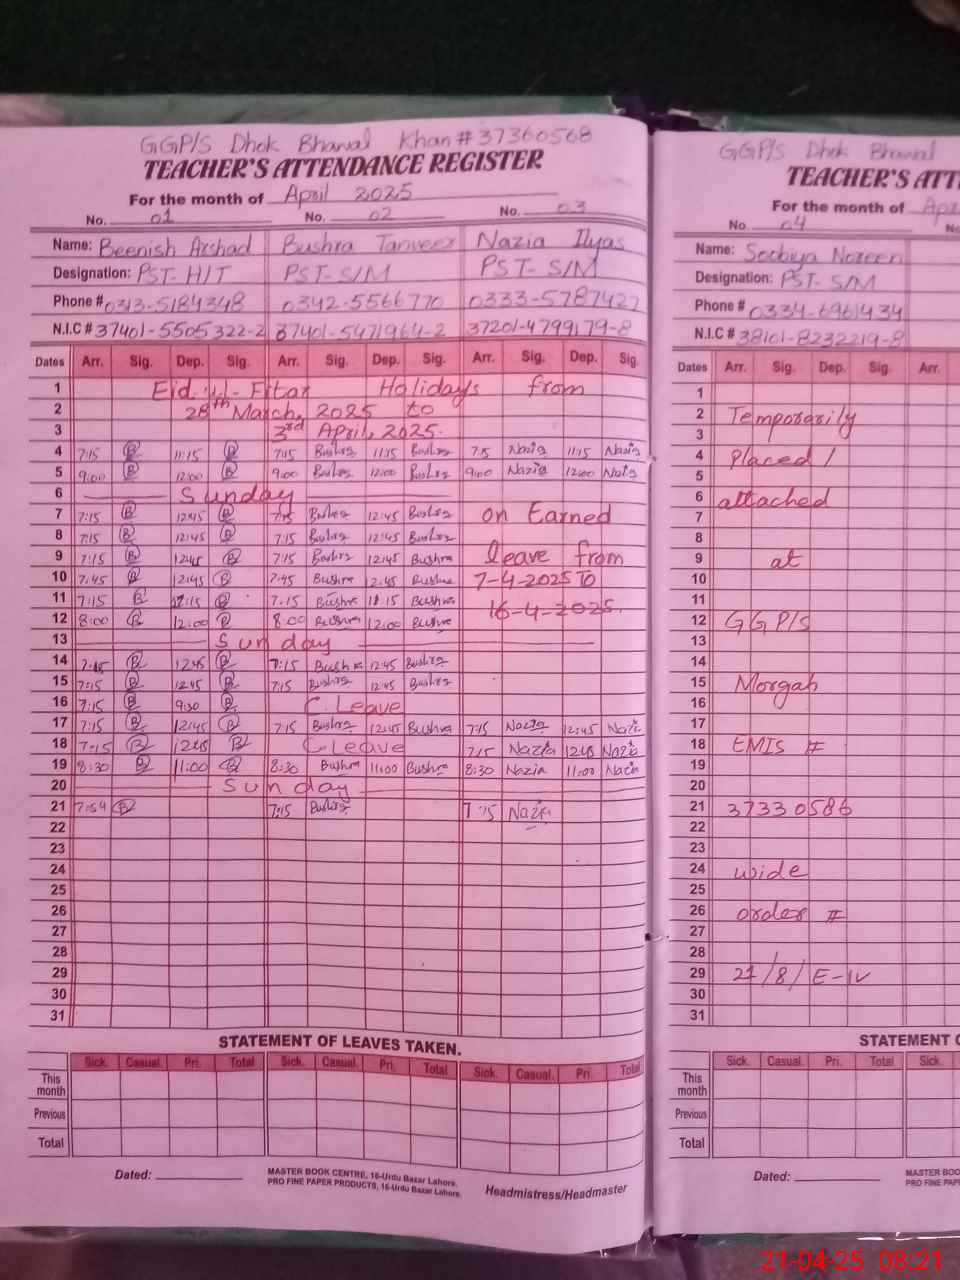 GGP/S Dhok Bhawal Khan # 37360568
TEACHER'S ATTENDANCE REGISTER
For the month of April 2025
No. 01 No. 02 No. 03
Name: Beenish Arshad Bushra Tanveer Nazia Ilyas
Designation: PST-H/T PST-S/M PST-S/M
Phone # 0313-5184348 0342-5566770 0333-5787427
N.I.C # 37401-5505322-2 37401-5471964-2 37201-4799179-8
Dates Arr. Sig. Dep. Sig. Arr. Sig. Dep. Sig. Arr. Sig. Dep. Sig.
1 Eid-ul-Fitar Holidays from
2 28th March, 2025 to
3 3rd April, 2025.
4 7:15 B 11:15 B 7:15 Bushra 11:15 Bushra 7:15 Nazia 11:15 Nazia
5 9:00 B 12:00 B 9:00 Bushra 12:00 Bushra 9:00 Nazia 12:00 Nazia
6 Sunday
7 7:15 B 12:45 B 7:15 Bushra 12:45 Bushra on Earned
8 7:15 B 12:45 B 7:15 Bushra 12:45 Bushra
9 7:15 B 12:45 B 7:15 Bushra 12:45 Bushra leave from
10 7:45 B 12:45 B 7:45 Bushra 12:45 Bushra 7-4-2025 To
11 7:15 B 12:15 B 7:15 Bushra Bushra 16-4-2025.
12 8:00 B 12:00 B 8:00 Bushra 12:00 Bushra
13 Sunday
14 7:15 B 12:45 B 7:15 Bushra 12:45 Bushra
15 7:15 B 12:45 B 7:15 Bushra 12:45 Bushra
16 7:15 B 9:30 B C.Leave
17 7:15 B 12:45 B 7:15 Bushra 12:45 Bushra 7:15 Nazia 12:45 Nazia
18 7:15 B 12:45 B C.Leave 7:15 Nazia 12:45 Nazia
19 8:30 B 11:00 B 8:30 Bushra 11:00 Bushra 8:30 Nazia 11:00 Nazia
20 Sunday
21 7:54 B 7:15 Bushra 7:15 Nazia
22
23
24
25
26
27
28
29
30
31
STATEMENT OF LEAVES TAKEN.
Sick. Casual. Pri. Total Sick. Casual. Pri. Total Sick. Casual. Pri. Total
This month
Previous
Total
Dated:
MASTER BOOK CENTRE, 16-Urdu Bazar Lahore.
PRO FINE PAPER PRODUCTS, 16-Urdu Bazar Lahore.
Headmistress/Headmaster
GGP/S Dhok Bhawal
TEACHER'S ATT
For the month of Apr
No. 04 No
Name: Sobiya Nozeen
Designation: PST-S/M
Phone # 0334-6961434
N.I.C # 38101-8232219-8
Dates Arr. Sig. Dep. Sig. Arr.
1
2 Temporarily
3
4 Placed /
5
6 attached
7
8
9 at
10
11
12 GGP/S
13
14
15 Morgah
16
17
18 EMIS #
19
20
21 37330586
22
23
24 wide
25
26 order #
27
28
29 21/8/E-IV
30
31
STATEMENT O
Sick. Casual. Pri. Total Sick.
This month
Previous
Total
Dated:
MASTER BOO
PRO FINE PAP
21-04-25 08:21